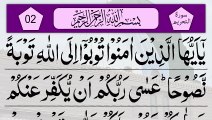 02
بِسْمِ اللّٰهِ الرَّحْمٰنِ الرَّحِيْمِ
سورة
التحريم
يٰۤاَيُّهَا الَّذِيْنَ اٰمَنُوْا تُوْبُوْۤا اِلَى اللّٰهِ تَوْبَةً
نَّصُوْحًا ؕ عَسٰى رَبُّكُمْ اَنْ يُّكَفِّرَ عَنْكُمْ